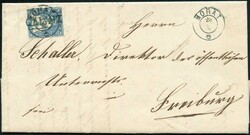 MORAT
Herrn
Schaller, Direktor des öffentlichen
Unterrichts
Freiburg